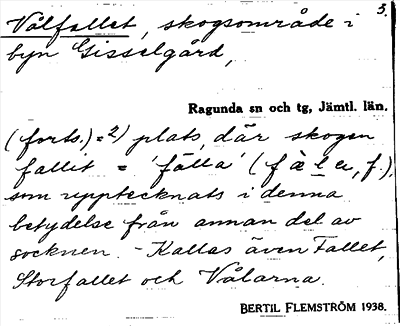 3.
Vålfallet, skogsområde i
byn Gisselgård,
Ragunda sn och tg, Jämtl. län.
(forts.) = 2) plats, där skogen
fallit = 'fälla' (fàla, f.),
som upptecknats i denna
betydelse från annan del av
socknen. - Kallas även Fallet,
Storfallet och Vålarna.
BERTIL FLEMSTRÖM 1938.